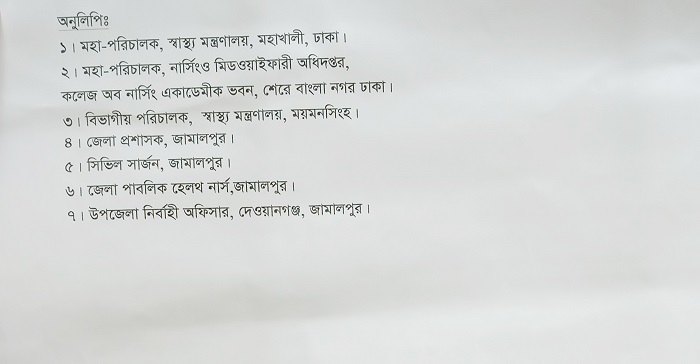 অনুলিপিঃ
১। মহা-পরিচালক, স্বাস্থ্য মন্ত্রণালয়, মহাখালী, ঢাকা।
২। মহা-পরিচালক, নার্সিংও মিডওয়াইফারী অধিদপ্তর,
কলেজ অব নার্সিং একাডেমীক ভবন, শেরে বাংলা নগর ঢাকা।
৩। বিভাগীয় পরিচালক, স্বাস্থ্য মন্ত্রণালয়, ময়মনসিংহ।
৪। জেলা প্রশাসক, জামালপুর।
৫। সিভিল সার্জন, জামালপুর।
৬। জেলা পাবলিক হেলথ নার্স,জামালপুর।
৭। উপজেলা নির্বাহী অফিসার, দেওয়ানগঞ্জ, জামালপুর।